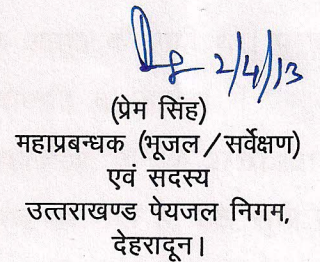 2/4/13
(प्रेम सिंह)
महाप्रबन्धक (भूजल/सर्वेक्षण)
एवं सदस्य
उत्तराखण्ड पेयजल निगम,
देहरादून।